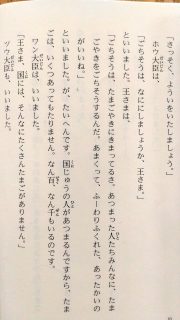 「さっそく、よういをいたしましょう。」
ホウ大臣は、
「ごちそうは、なににしましょうか、王さま。」
といいました。王さまは、
「ごちそうは、たまごやきにきまってるさ。あつまった人たちみんなに、たま
ごやきをごちそうするんだ。あまくって、ふーわりふくれた、あったかいの
がいいね。」
といいました。が、たいへんです。国じゅうの人があつまるんですから、たま
ごは、いくつあってもたりません。なん百、なん千もいるのです。
ワン大臣は、いいました。
「王さま、国には、そんなにたくさんたまごがありません。」
ツウ大臣も、いいました。